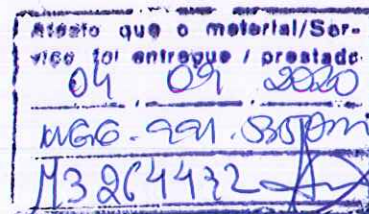 Atesto que o material/Ser-
viço foi entregue / prestado
04 09 2020
M3264432